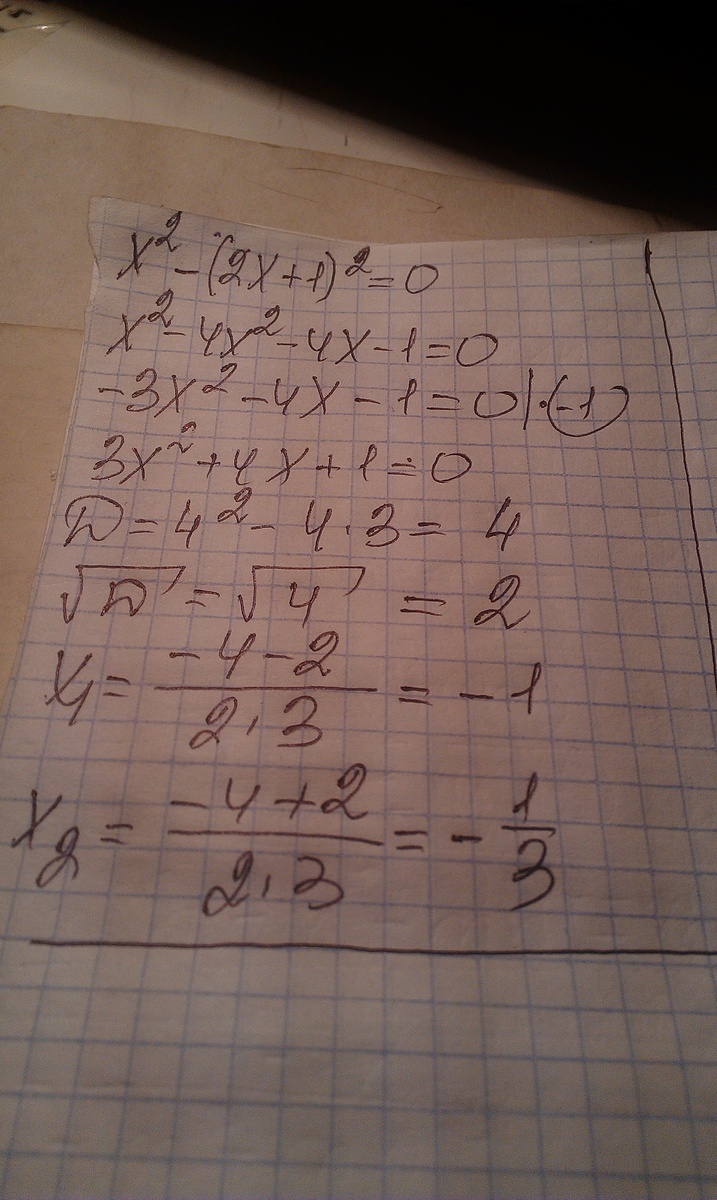 x² - (2x+1)² = 0
x² - 4x² - 4x - 1 = 0
-3x² - 4x - 1 = 0 | ·(-1)
3x² + 4x + 1 = 0
D = 4² - 4·3 = 4
√D = √4 = 2
x₁ = (-4-2)/(2·3) = -1
x₂ = (-4+2)/(2·3) = -1/3